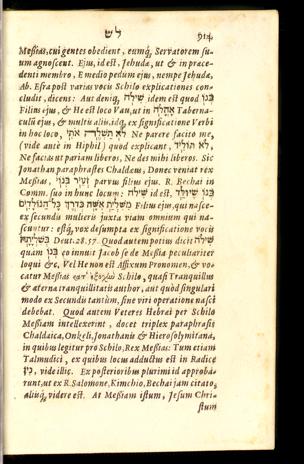 לש
Messias, cui gentes obedient, eumq, Servatorem su-
um agnoscent. Ejus, id est, Jehuda, ut & in præce-
denti membro, E medio pedum ejus, nempe Jehuda,
Ab. Esra post varias vocis Schilo explicationes con-
cludit, dicens: Aut deniq, שילה idem est quod בנו
Filius ejus, & He est loco Vau, ut in אהלה Taberna-
culũ ejus, & multis aliis, idq, ex significatione Verbi
in hoc loco, לא תשלה אתי Ne parere facito me,
(vide anté in Hiphil) quod explicant, לא תוליד,
Ne facias ut pariam liberos, Ne des mihi liberos. Sic
Jonathan paraphrastes Chaldæus, Donec veniat rex
Messias, זעיר בנוי parvus filius ejus. R. Bechai in
Comm. suo in hunc locum: שילה id est, בנו שיולד
משלית אשה כדרך כל הנולדים Filius ejus, qui nasce-
ex secundis mulieris juxta viam omnium qui na-
scuntur: estq, vox desumpta ex significatione vocis
בשליתה Deut. 28. 57. Quod autem potius dicit שילה
quam בנו eo innuit Jacob se de Messia peculiariter
loqui &c, Vel He non est Affixum Pronomen, & vo-
catur Messias κατ' ἐξοχὴν Schilo, quasi Tranquillus
& æterna tranquillitatis author, aut quòd singulari
modo ex Secundis tantùm, sine viri operatione nasci
debebat. Quod autem Veteres Hebræi per Schilo
Messiam intellexerint, docet triplex paraphrasis
Chaldaica, Onkeli, Jonathanis & Hierosolymitana,
in quibus legitur pro Schilo, Rex Messias: Tum etiam
Talmudici, ex quibus locus adductus est in Radice
דין, vide illic. Ex posterioribus plurimi id approba-
runt, ut ex R. Salomone, Kimchio, Bechai jam citato,
aliisq, videre est. At Messiam istum, Jesum Chri-
stum